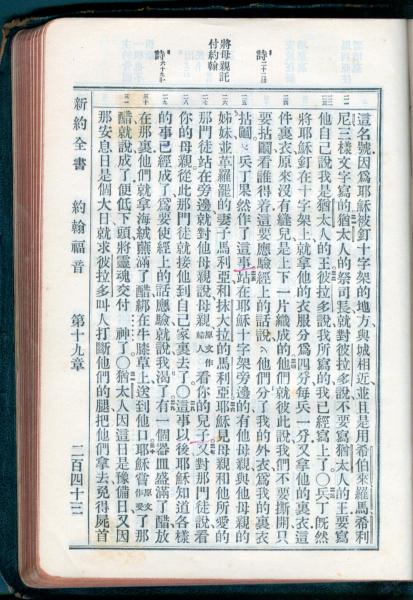 這名號因爲耶穌被釘十字架的地方與城相近、並且是用希伯來羅馬希利
尼三樣文字寫的猶太人的祭司長就對彼拉多說不要寫猶太人的王要寫
他自己說我是猶太人的王彼拉多說我所寫的我已經寫上了○兵丁旣然
將耶穌釘在十字架上就拿他的衣服分爲四分每兵一分又拿他的裏衣這
件裏衣原來沒有縫兒是上下一片織成的他們就彼此說我們不要撕開只
要拈鬮看誰得着這要應驗經上的話說他們分了我的外衣爲我的裏衣
拈鬮兵丁果然作了這事站在耶穌十字架旁邊的有他母親與他母親的
姊妹並革羅罷的妻子馬利亞和抹大拉的馬利亞耶穌見母親和他所愛的
那門徒站在旁邊就對他母親說母親原文作婦人看你的兒子又對那門徒說看
你的母親從此那門徒就接他到自己家裏去了○這事以後耶穌知道各樣
的事已經成了爲要使經上的話應驗就說我渴了有一個器皿盛滿了醋放
在那裏他們就拿海絨蘸滿了醋綁在牛膝草上送到他口耶穌嘗原文作受了那
醋就說成了便低下頭將靈魂交付 神了○猶太人因這日是豫備日又因
那安息日是個大日就求彼拉多叫人打斷他們的腿把他們拿去免得屍首
詩
將母親託
付約翰
詩
新約全書 約翰福音 第十九章 二百四十三